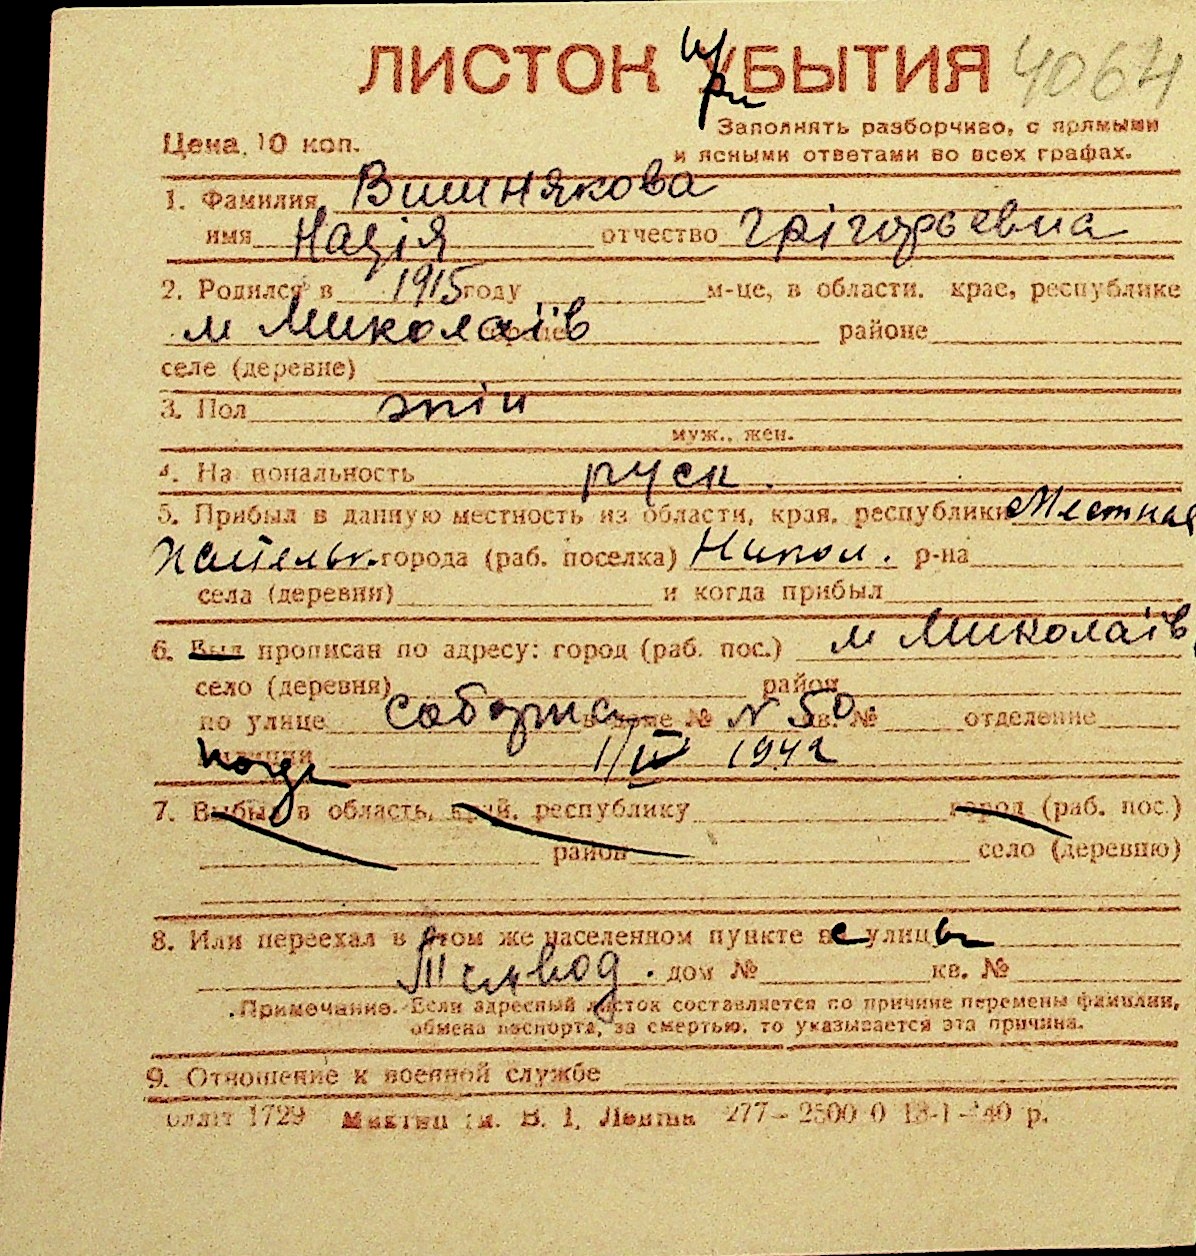 ЛИСТОК УБЫТИЯ 4064
при
Цена 10 коп.
Заполнять разборчиво, с прямыми
и ясными ответами во всех графах.
1. Фамилия Вишнякова
имя Надія отчество Грігорьевна
2. Родился в 1915 году м-це, в области, крае, республике
м Миколаїв районе
селе (деревне)
3. Пол
муж., жен.
4. Национальность руск.
5. Прибыл в данную местность из области, края, республики Местная
жительн. города (раб. поселка) Никол. р-на
села (деревни) и когда прибыл
6. Был прописан по адресу: город (раб. пос.) м Миколаїв
село (деревня) район
по улице Соборна в доме № N 50. кв. № отделение
милиции 1/IV 1942
когда
7. Выбыл в область, край, республику город (раб. пос.)
район село (деревню)
8. Или переехал в этом же населенном пункте с улицы
дом № кв. №
Примечание. Если адресный листок составляется по причине перемены фамилии,
обмена паспорта, за смертью, то указывается эта причина.
9. Отношение к военной службе
1729 В. І. Леніна 277–2500 0 13-1-40 р.